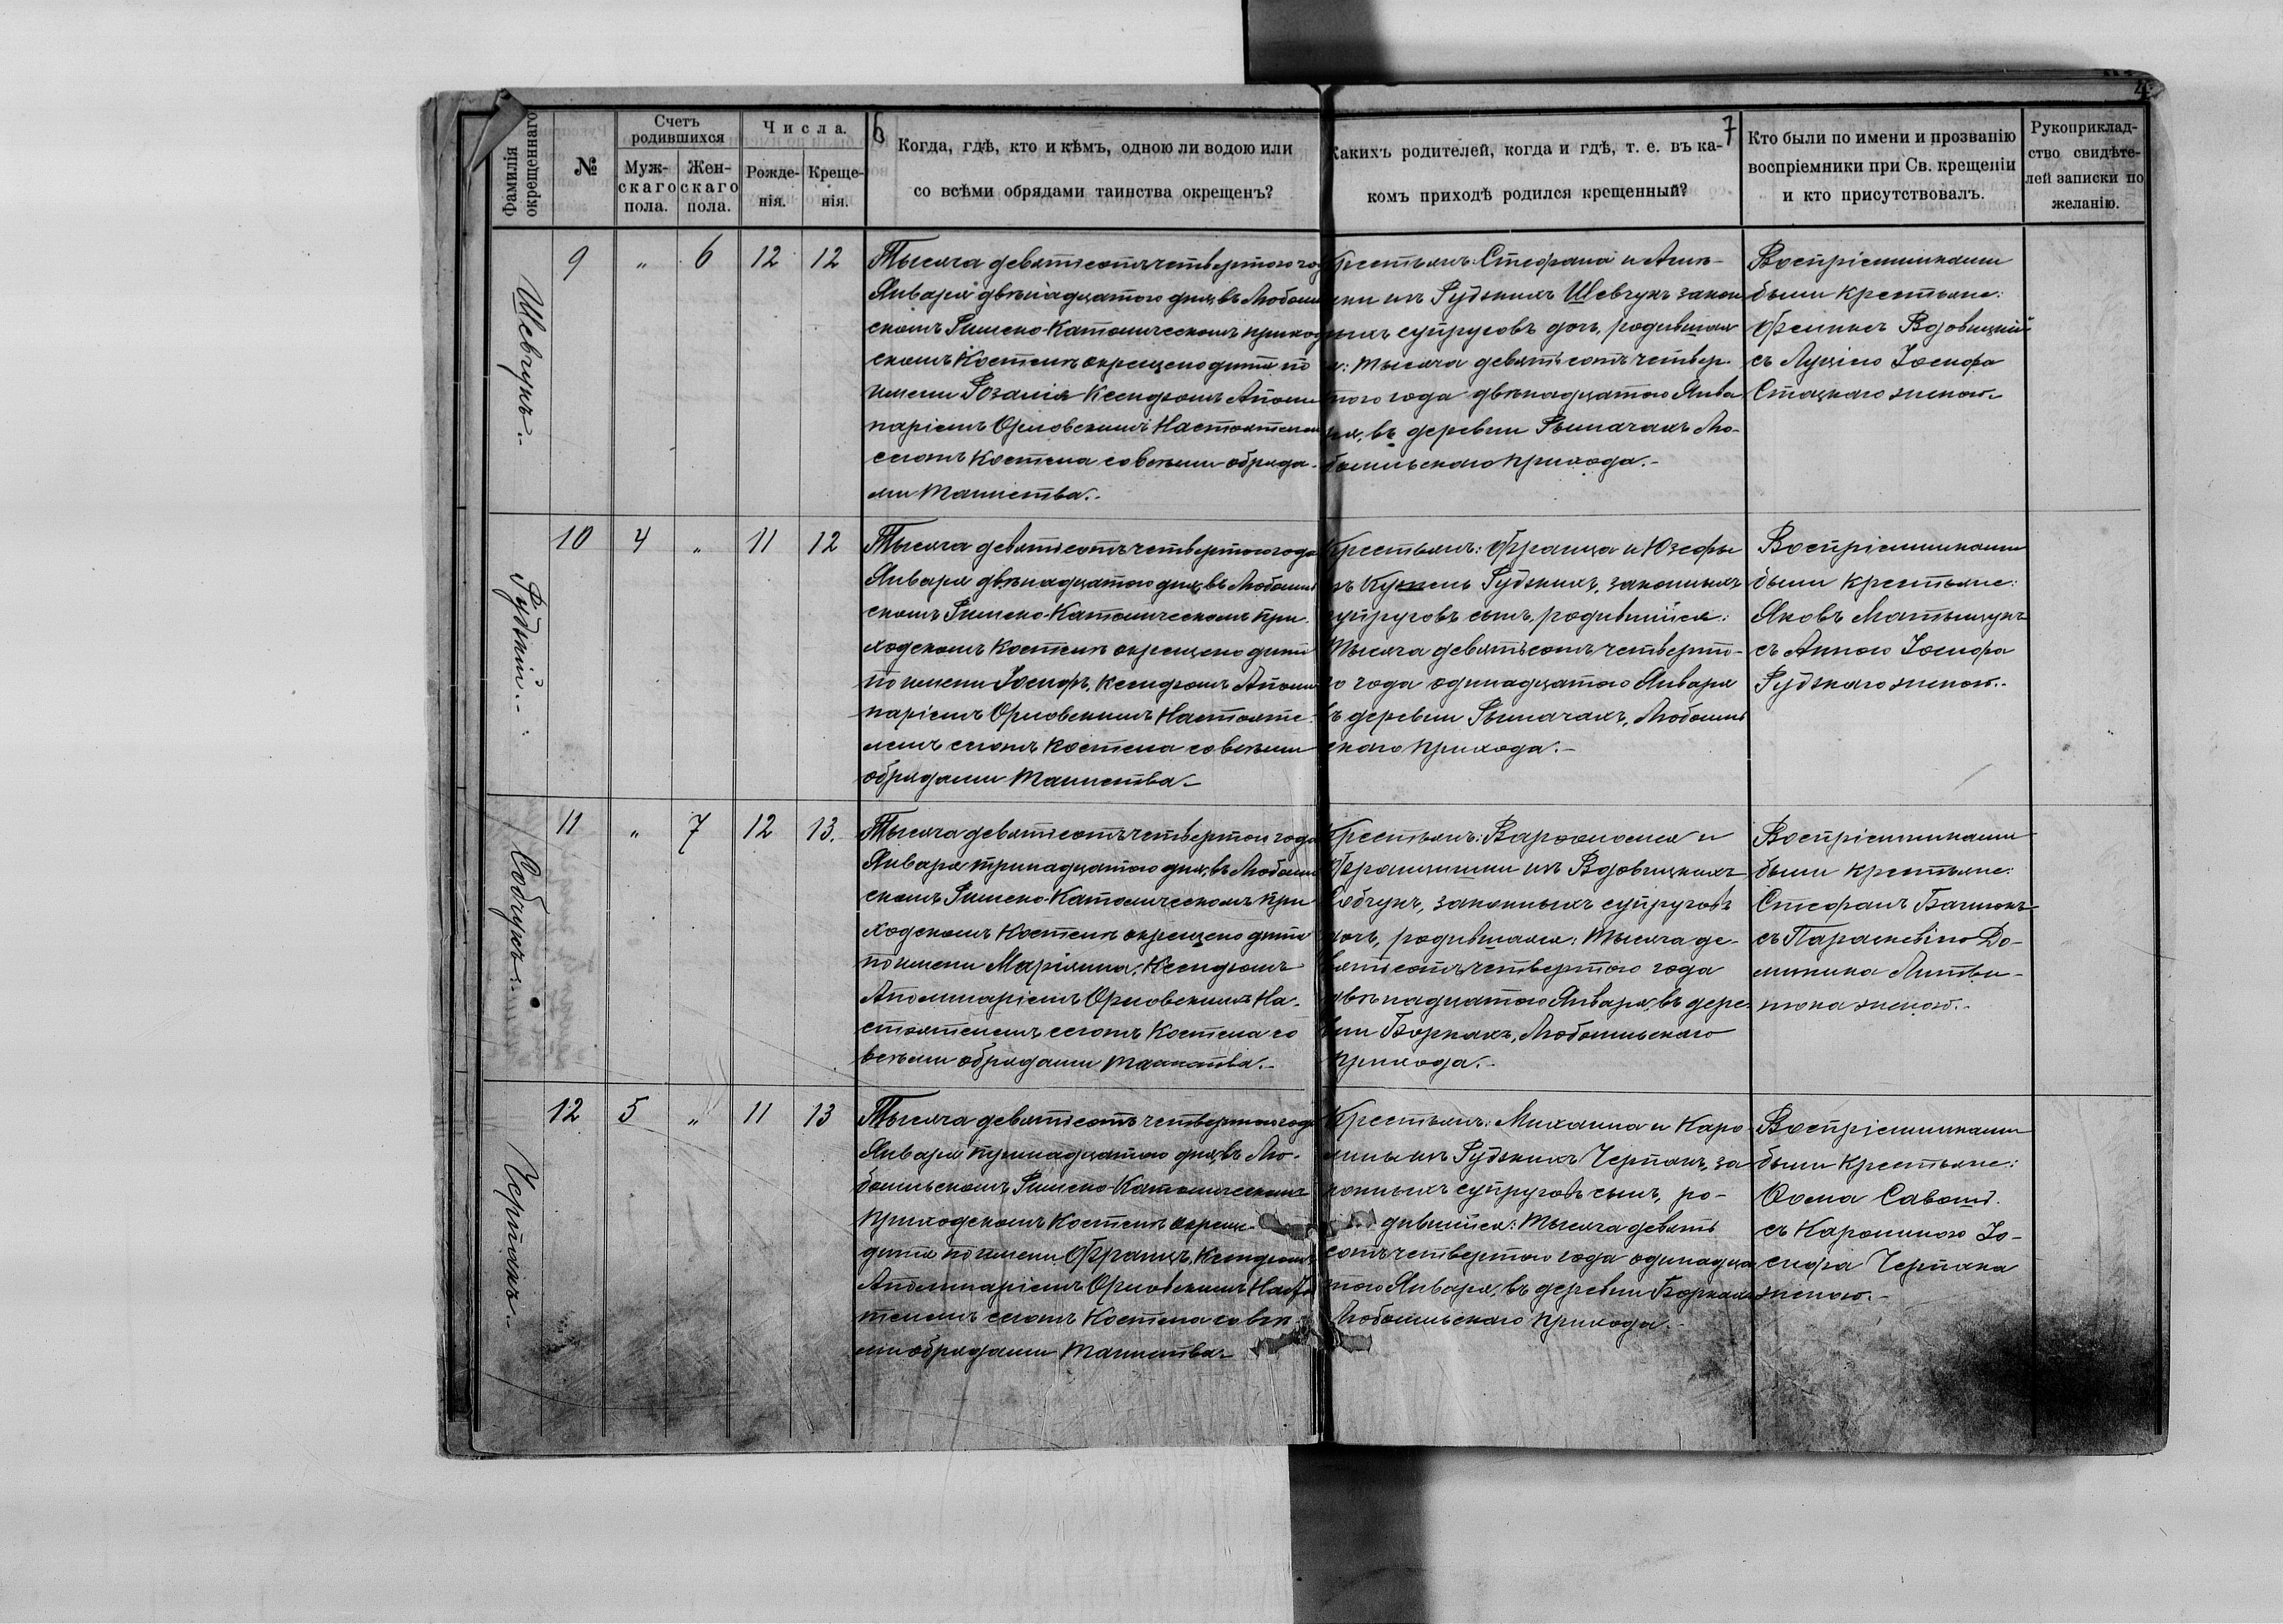 4
6
7
Фамилія окрещеннаго
№
Счетъ родившихся
Муж-скаго пола.
Жен-скаго пола.
Числа.
Рожде-нія.
Креще-нія.
Когда, гдѣ, кто и кѣмъ, одною ли водою или
со всѣми обрядами таинства окрещенъ?
Какихъ родителей, когда и гдѣ, т. е. въ ка-
комъ приходѣ родился крещенный?
Кто были по имени и прозванію
воспріемники при Св. крещеніи
и кто присутствовалъ.
Рукоприклад-
ство свидѣте-
лей записки по
желанію.
Шевчукъ.
9 " 6 12 12
Тысяча девятьсотъ четвертого го
Января двѣнадцатого дня, въ Любомль
скомъ Римско-Католическомъ приход
скомъ Костелѣ окрещено дитя по
имени Розалія Ксендзомъ Аполи
наріемъ Орловскимъ Настоятелемъ
сегожъ Костела со всѣми обряда-
ми Таинства.
Крестьянъ: Стефана и Анны-
изъ Рудзкихъ Шевчукъ закон
ныхъ супруговъ дочь, родившая
ся: Тысяча девятьсотъ четвер-
того года двѣнадцатого Янва
ря, въ деревни Рымачахъ Лю-
бомльскаго прихода.-
Воспріемниками
были крестьяне:
Феликсъ Вдовицкій
съ Луціею Іосифа
Стацкаго женою.
Рудзкій.
10 4 " 11 12
Тысяча девятьсотъ четвертого года
Января двѣнадцатого дня, въ Любомль
скомъ Римско-Католическомъ при-
ходскомъ Костелѣ окрещено дитя
по имени Іосифъ, Ксендзомъ Аполи
наріемъ Орловскимъ Настояте-
лемъ сегожъ Костела со всѣми
обрядами Таинства.
Крестьянъ: Франца и Юзефы
Рудзкихъ, законныхъ
супруговъ сынъ, родившійся:
Тысяча девятьсотъ четверто-
го года одинадцатого Января
въ деревни Рымачахъ, Любомль
скаго прихода.-
Воспріемниками
были крестьяне:
Яковъ Матыщукъ
съ Анною Іосифа
Рудзкаго женою.
Собчукъ.
11 " 7 12 13.
Тысяча девятьсотъ четвертого года
Января тринадцатого дня, въ Любомль
скомъ Римско-Католическомъ при
ходскомъ Костелѣ окрещено дитя
по имени Маріянна, Ксендзомъ
Аполинаріемъ Орловскимъ На-
стоятелемъ сегожъ Костела со
всѣми обрядами Таинства.-
Крестьянъ: Варѳоломея и
Францишки изъ Вдовицкихъ
Собчукъ, законныхъ супруговъ
дочь, родившаяся: Тысяча де-
вятьсотъ четвертого года
двѣнадцатого Января, въ дере-
вни Боркахъ, Любомльскаго
прихода.-
Воспріемниками
были крестьяне:
Стефанъ
съ Параскевіею До-
миника Литви-
нюка женою.-
Черпакъ.
12 5 " 11 13
Тысяча девятьсотъ четвертого года
Января тринадцатого дня, въ Лю-
бомльскомъ Римско-Католическомъ
приходскомъ Костелѣ окреще-
дитя по имени Францъ, Ксендзомъ
Аполинаріемъ Орловскимъ Настоя
телемъ сегожъ Костела со всѣ-
ми обрядами Таинства.
Крестьянъ: Михаила и Каро
лины изъ Рудзкихъ Черпакъ, за
конныхъ супруговъ сынъ, ро-
дившійся: Тысяча девять
сотъ четвертого года одинадца
того Января, въ деревни Боркахъ
Любомльскаго прихода.-
Воспріемниками
были крестьяне:
Ѳома
съ Каролиною Іо-
сифа Черпака
женою.-